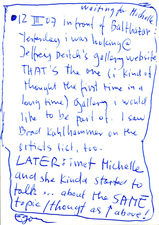 waiting for Michelle
12 III 07 in front of Balthazar:
Yesterday i was looking@
Jeffrey Deitch's gallery website
THAT's the one (i kind of
thought the first time in a
long time) Gallery i would
like to be part of. I saw
Brad Kahlhammer on the
artists list, too.
LATER: i met Michelle
and she kinda started to
talk ... about the SAME
topic/thought as ↑ above!